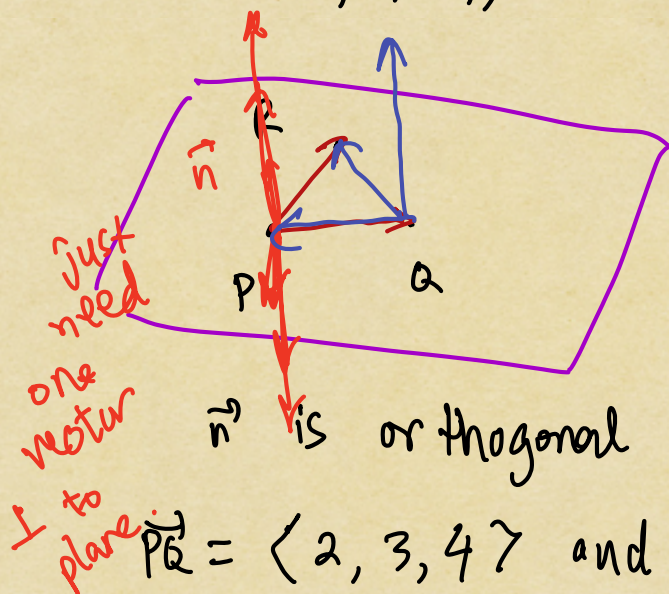 R
n
P
Q
just
need
one
vector
⊥ to
plane.
n is orthogonal
PQ = ⟨2, 3, 4⟩ and